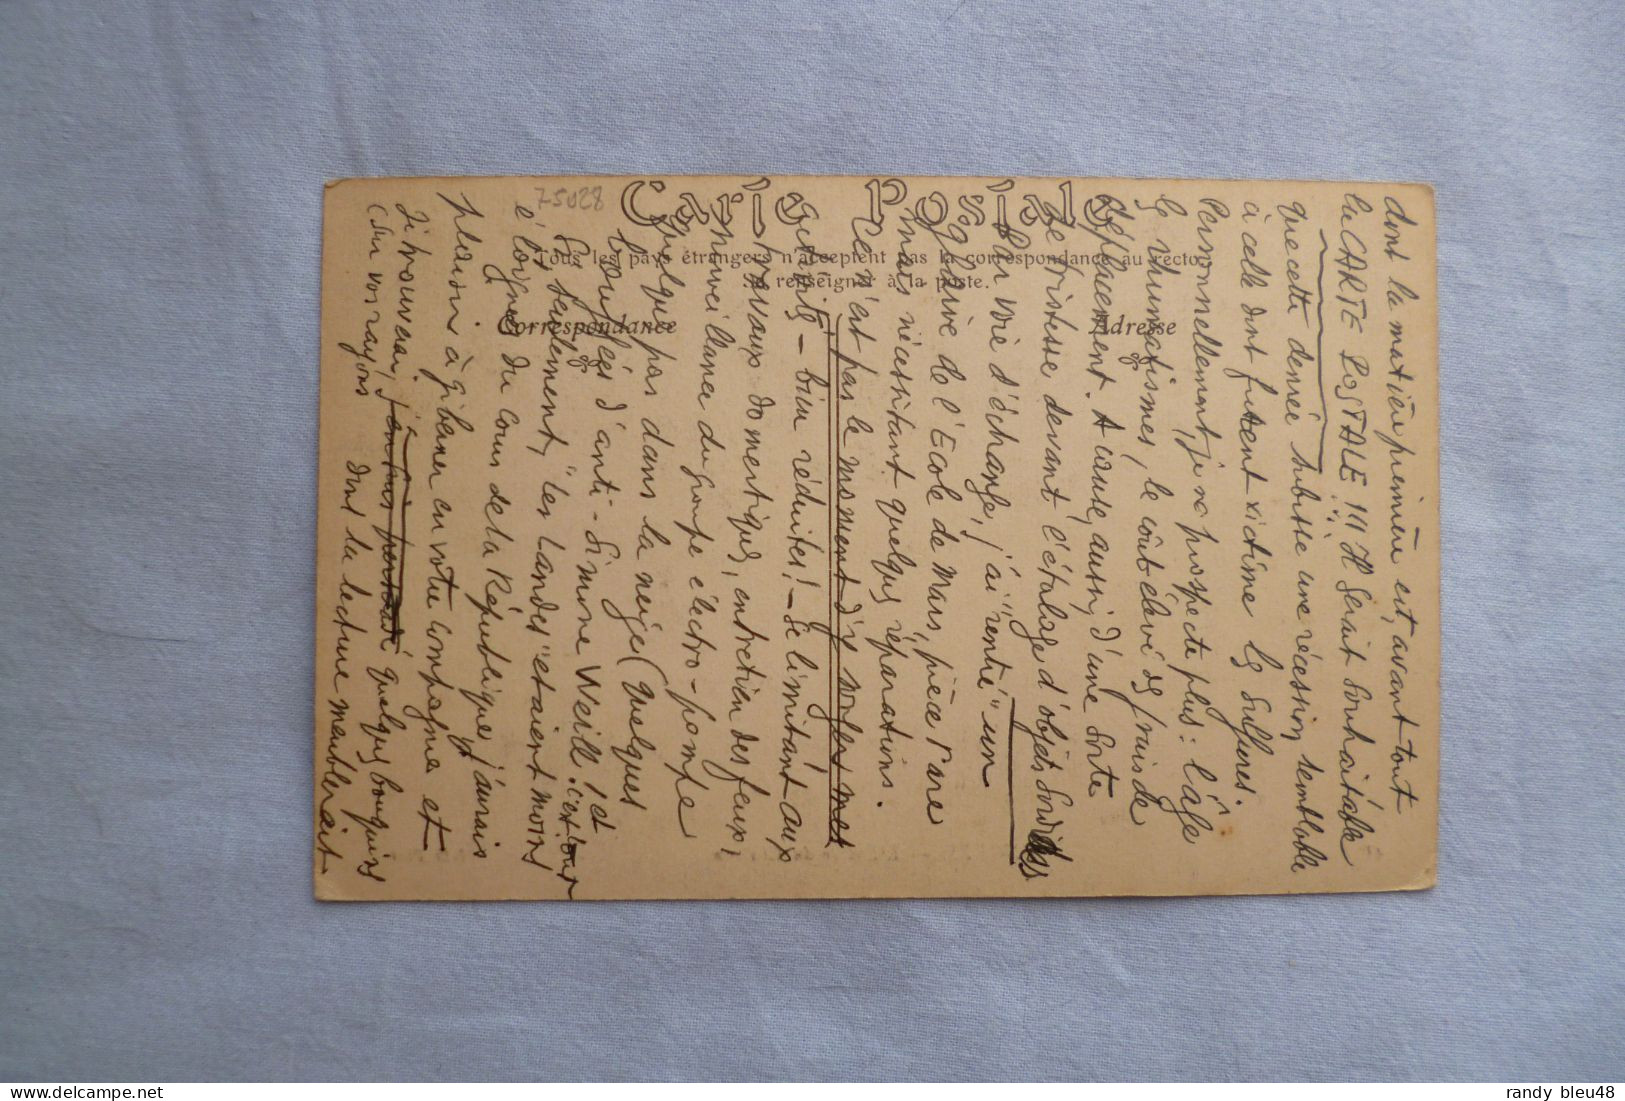 Carte Postale
Tous les pays étrangers n'acceptent pas la correspondance au recto.
Se renseigner à la poste.
Correspondance
Adresse
75028
dont la matière première est, avant tout
la CARTE POSTALE !!! Il serait souhaitable
que cette denrée subisse une récession, semblable
à celle dont furent victime les sulfures.
Personnellement, je ne prospecte plus : l'âge
les rhumatismes, le coût élevé des frais de
déplacement. A cause, aussi, d'une sorte
de tristesse devant l'étalage d'objets sordides
Par voie d'échange, j'ai "rentré" un
glaive de l'Ecole de Mars, pièce rare
mais nécessitant quelques réparations.
Ce n'est pas le moment d'y songer mes
activités - bien réduites ! - se limitant aux
travaux domestiques, entretien des feux,
surveillance du groupe électro-pompe
quelques pas dans la neige (quelques
bouffées d'anti-Simone Weill ! et
Si, seulement, "les Landes" étaient moins c'est tout
éloignées du Cours de la République, j'aurais
plaisir à g'iberner en votre compagnie et
je trouverai, quelques bouquins
(sur vos rayons dont la lecture me meublerait
randy bleu48